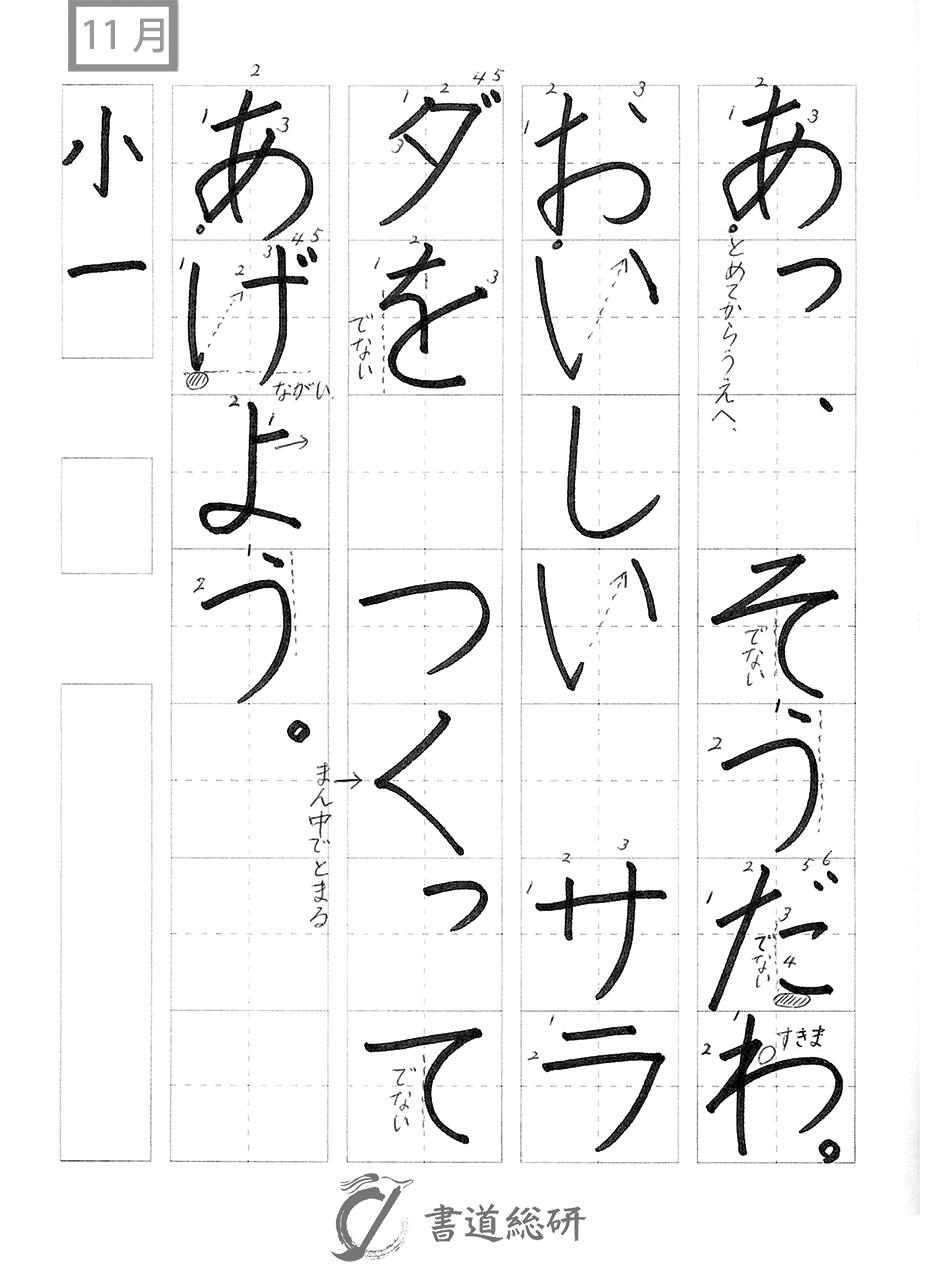 11月
あっ、そうだわ。
おいしいサラ
ダをつくって
あげよう。
小一
とめてからうえへ、
でない
でない
すきま
でない
でない
まん中でとまる
ながい
書道総研